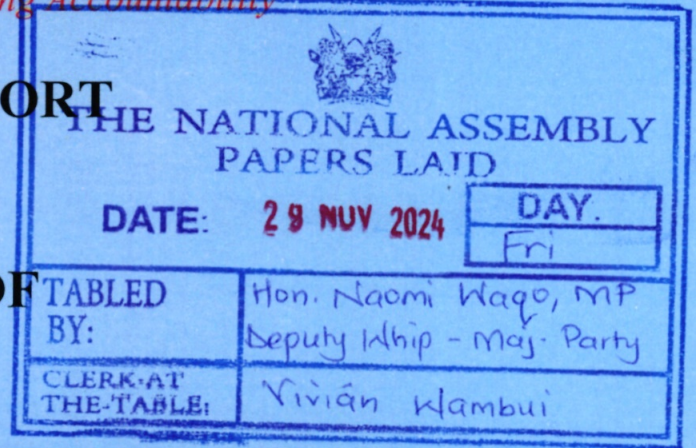 ng Accountability
ORT
THE NATIONAL ASSEMBLY
PAPERS LAID
DATE: 29 NOV 2024
DAY.
Fri
OF
TABLED BY:
Hon. Naomi Waqo, MP
Deputy Whip - Maj. Party
CLERK-AT THE-TABLE:
Vivian Wambui